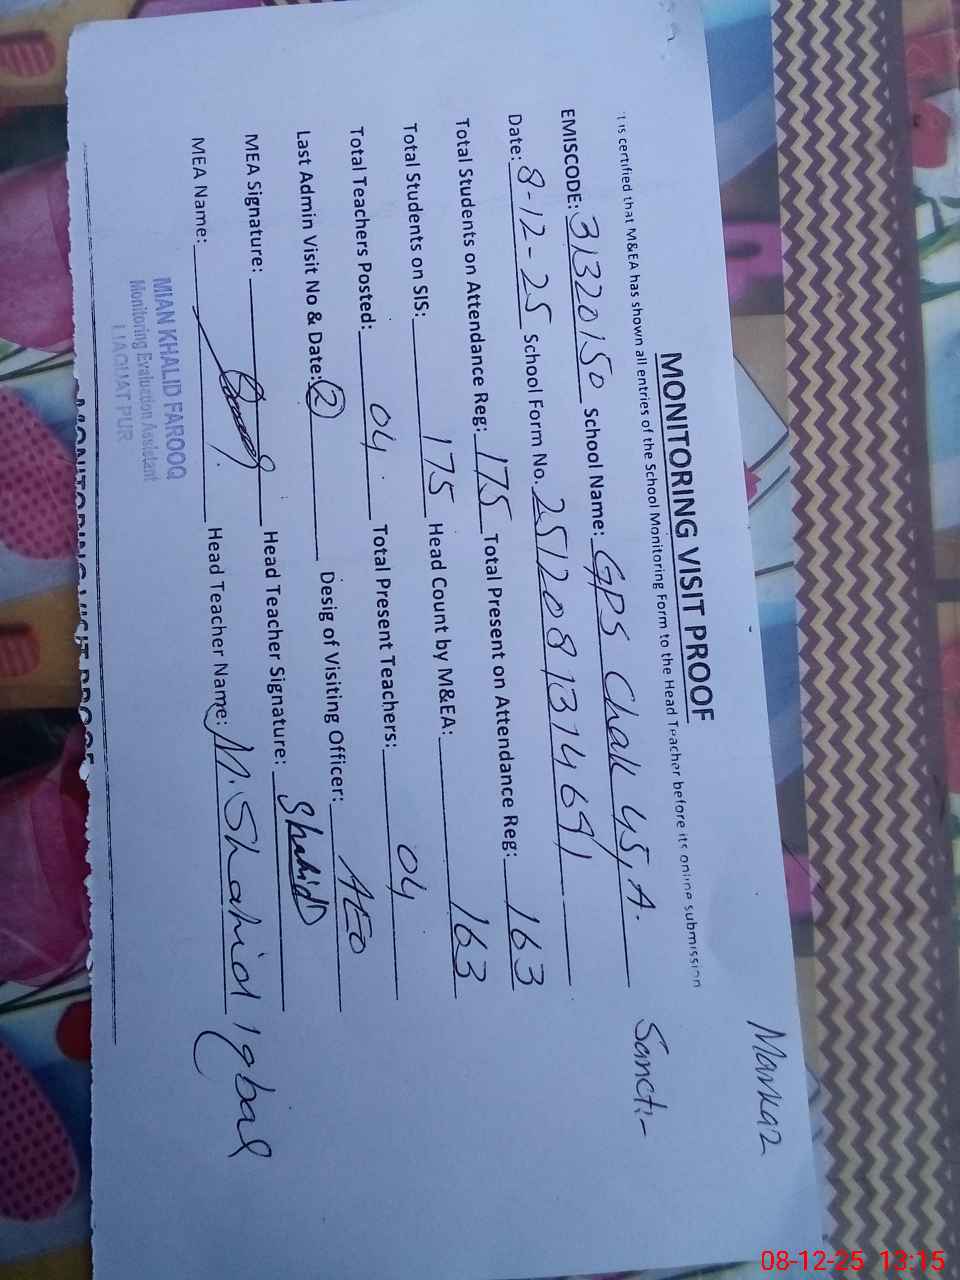 Markaz
MONITORING VISIT PROOF
t is certified that M&EA has shown all entries of the School Monitoring Form to the Head Teacher before its online submission
Sanct:-
EMISCODE: 31320150 School Name: GPS Chak 45, A.
Date: 8-12-25 School Form No. 2512081374691
Total Students on Attendance Reg: 175 Total Present on Attendance Reg: 163
Total Students on SIS: 175 Head Count by M&EA: 163
Total Teachers Posted: 04 Total Present Teachers: 04
Last Admin Visit No & Date: 2 Desig of Visiting Officer: AEO
MEA Signature: Head Teacher Signature: Shahid
MEA Name: Head Teacher Name: M. Shahid Iqbal
MIAN KHALID FAROOQ
Monitoring Evaluation Assistant
LIAQUAT PUR
MONITORING VISIT PROOF
08-12-25 13:15